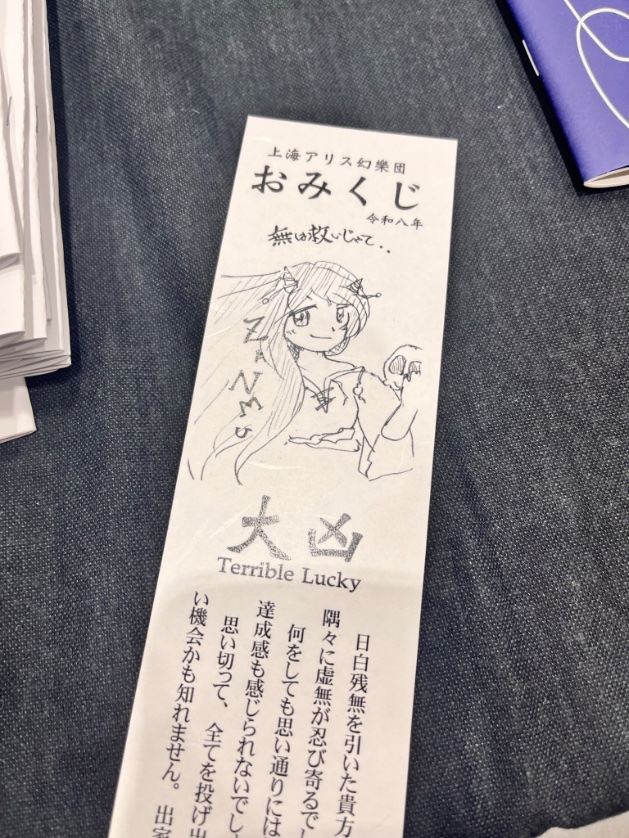 上海アリス幻樂団
おみくじ
令和八年
無は救いじゃて..
ZANMU
大凶
Terrible Lucky
日白残無を引いた貴方
隅々に虚無が忍び寄るでし
何をしても思い通りには
達成感も感じられないでし
思い切って、全てを投げ出
い機会かも知れません。出家